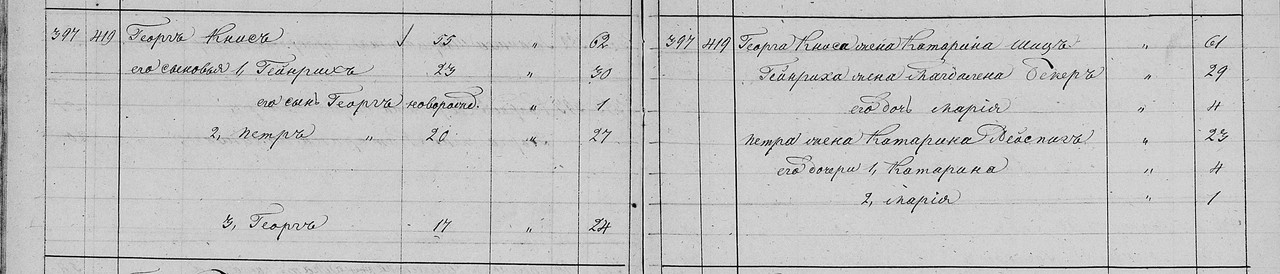 397 419 Георгъ Книсъ 55 " 62
его сыновья 1, Гейнрихъ 23 " 30
его сынъ Георгъ новорожд. " 1
2, Петръ " 20 " 27
3, Георгъ 17 " 24
397 419 Георга Книса жена Катарина Шицъ " 61
Гейнриха жена Магдалена Бекеръ " 29
его дочь Марія " 4
Петра жена Катарина " 23
его дочери 1, Катарина " 4
2, Марія " 1